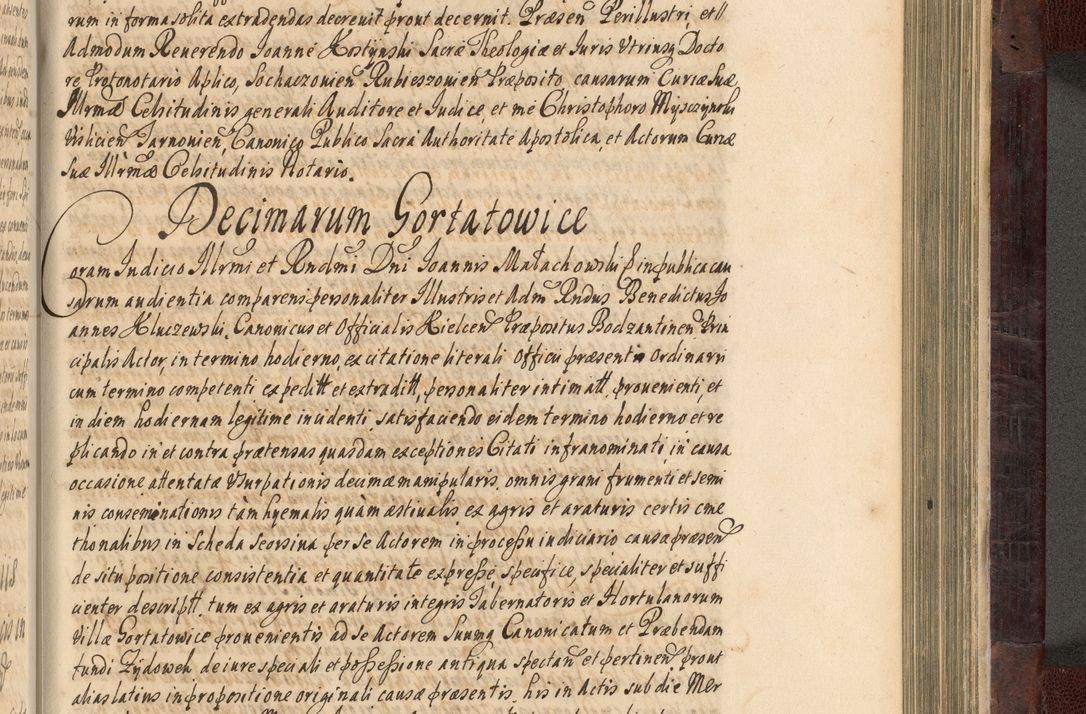 rum in forma solita extradendas decrevit prout decernit. Præsen Perillustri et
Admodum Reverendo Joanne Kostynski Sacræ Theologiæ et Juris Utriusq Docto
re Protonotario Aplico, Sochaczovien Rubieszovien Præposito causarum Curiæ Suæ
Illrmæ Celsitudinis generali Auditore et Judice, et me Christophoro
Vislicien Tarnovien, Canonico Publico Sacra Authoritate Apostolica, et Actorum Curiæ
Suæ Illrmæ Celsitudinis Notario.
Decimarum Gortatowice
Coram Judicio Illrmi et Rndmi Dni Joannis Małachowski in publica cau
sarum audientia comparens personaliter Illustris et Adm Rndus Benedictus Jo
annes Kluczewski, Canonicus et Officialis Kielcen Præpositus Bodzantinen Prin
cipalis Actor, in termino hodierno, ex citatione literali Officii præsentis Ordinarii
cum termino competenti expeditt et extraditt, personaliter intimatt, provenienti, et
in diem hodiernam legitime incidenti, satisfaciendo eidem termino hodierno et re
plicando in et contra prætensas quasdam exceptiones Citati infranominati, in causa
occasione attentatæ Usurpationis decimæ manipularis, omnis grani frumenti et semi
nis conseminationis tàm hyemalis quàm æstivalis, ex agris et araturis certis cme
thonalibus in Scheda seorsiva per se Actorem in processu iudiciario causæ præsen
de situ positione consistentia et quantitate expresse, specifice, specialiter et suffi
cienter descriptt, tum ex agris et araturis integris Tabernatoris et Hortulanorum
Villæ Gortatowice provenientis ad se Actorem Suumq Canonicatum et Præbendam
fundi Zydoweh de iure speciali et possessione antiqua spectan et pertinen, prout
alias latius in propositione originali causæ præsentis, his in Actis sub die Mer